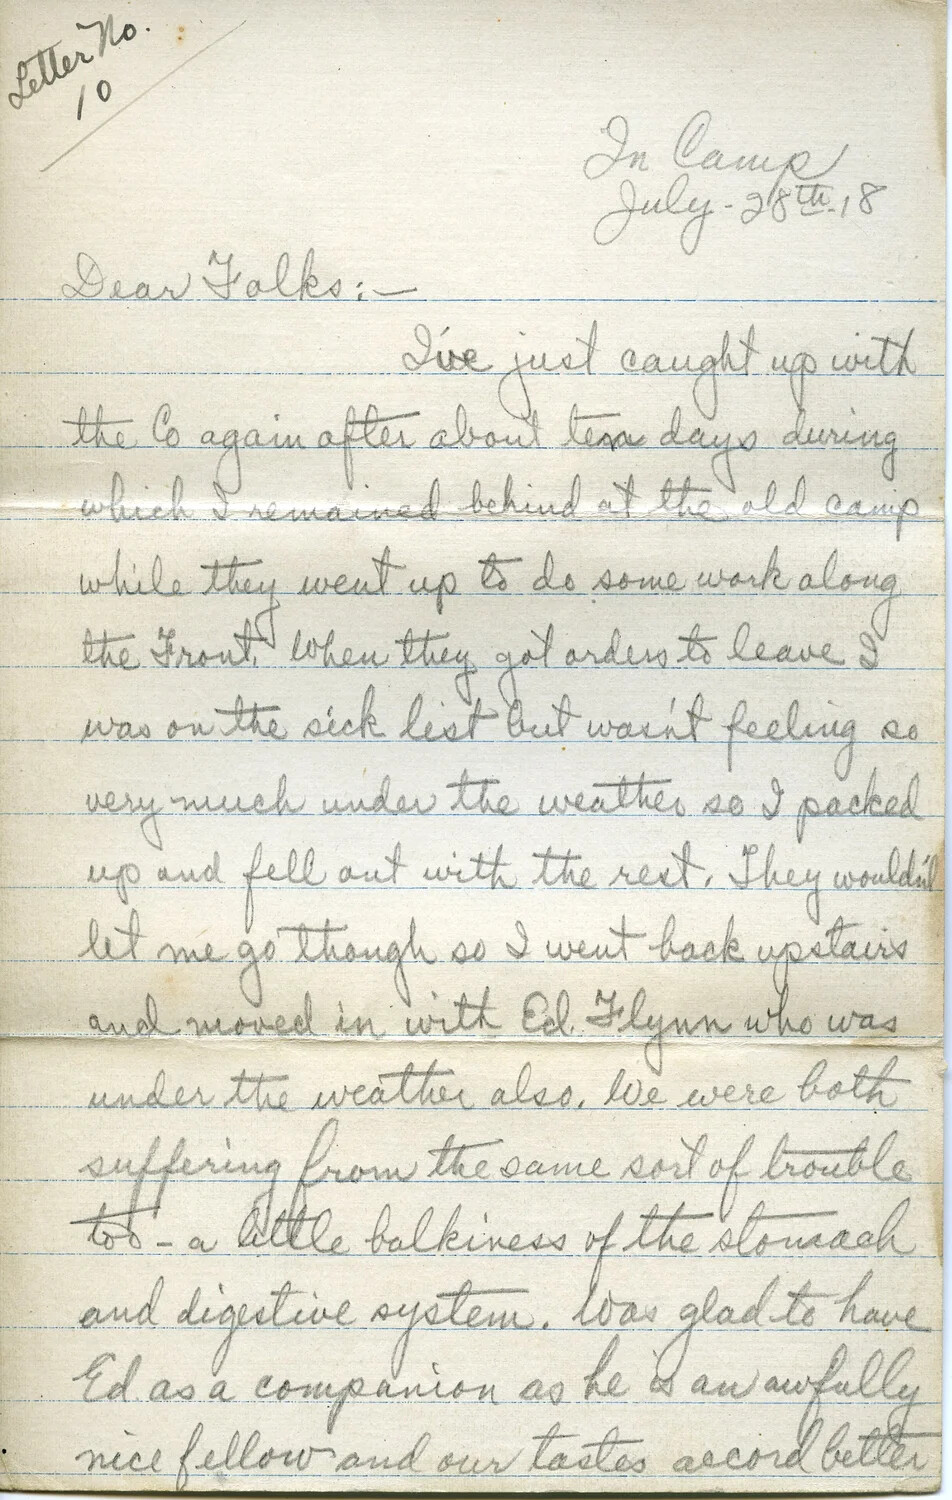 Letter No.
10
In Camp
July-28th-18
Dear Folks:—
I've just caught up with
the Co again after about ten days during
which I remained behind at the old camp
while they went up to do some work along
the Front. When they got orders to leave I
was on the sick list but wasn't feeling so
very much under the weather so I packed
up and fell out with the rest. They wouldn't
let me go though so I went back upstairs
and moved in with Ed. Flynn who was
under the weather also. We were both
suffering from the same sort of trouble
too - a little balkiness of the stomach
and digestive system. Was glad to have
Ed as a companion as he is an awfully
nice fellow and our tastes accord better